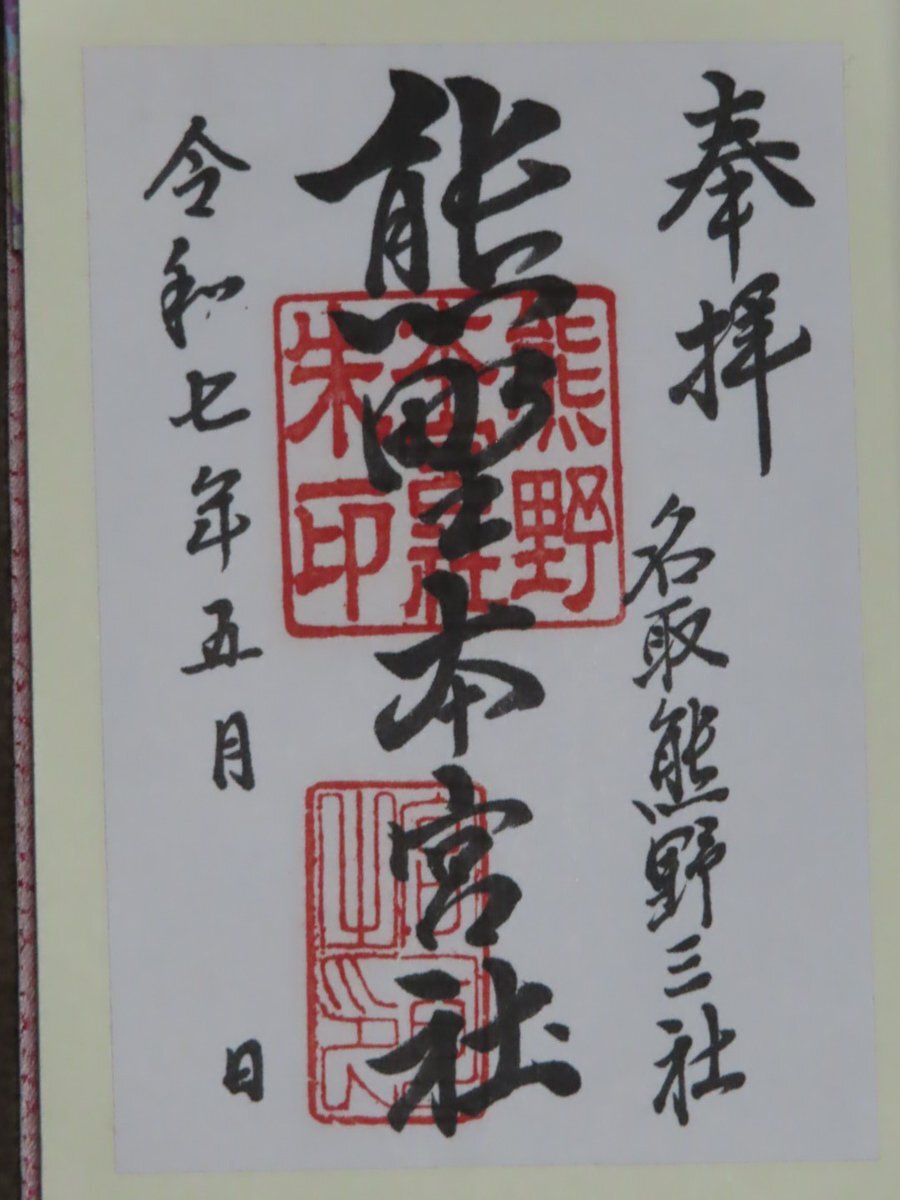 奉拝
名取熊野三社
熊野本宮社
令和七年五月 日
熊野
朱印
宮司
之印